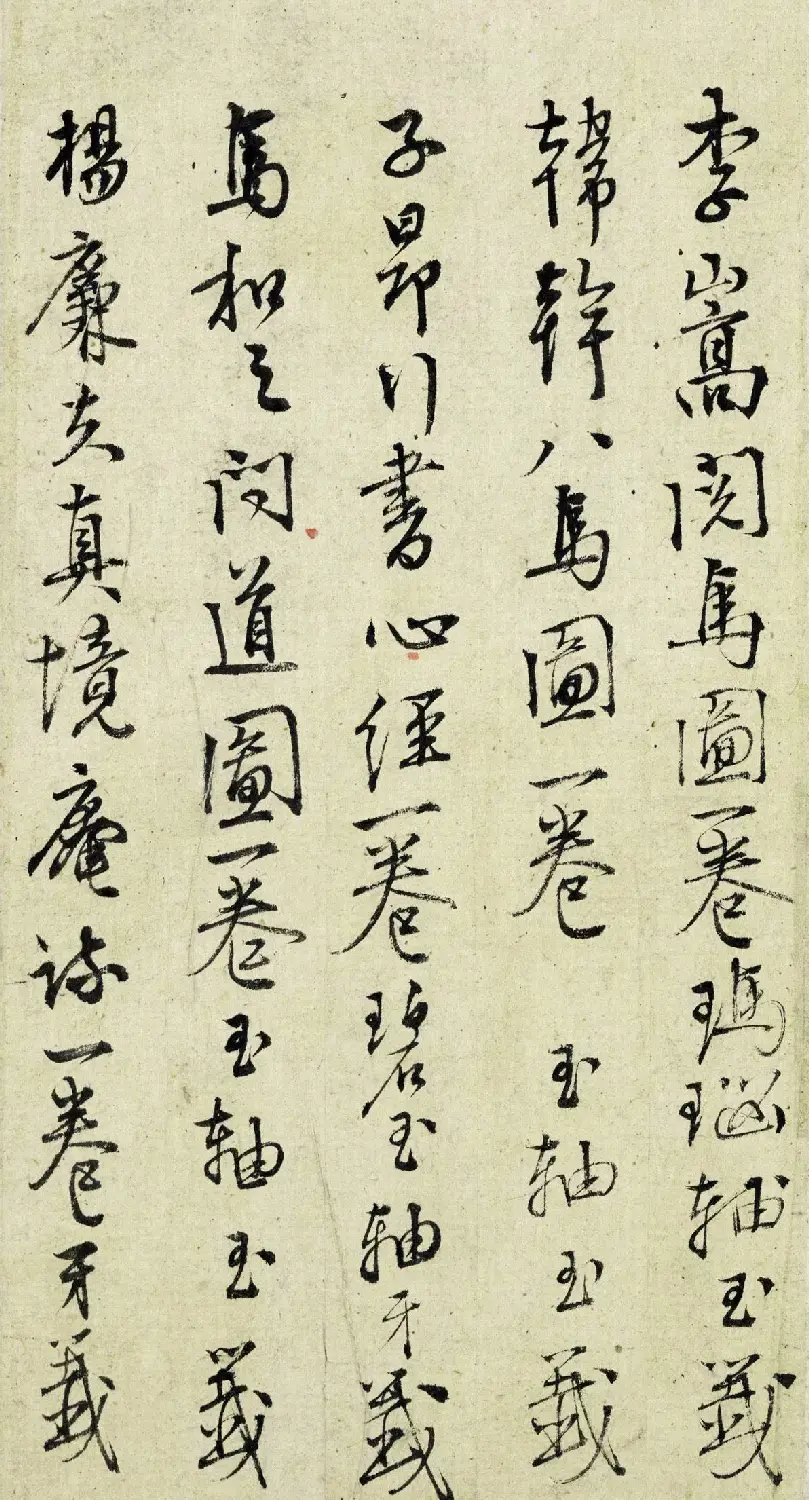 李嵩閱馬圖一卷瑪瑙軸玉籤
韓幹八馬圖一卷 玉軸玉籤
子昂行書心經一卷碧玉軸牙籤
馬和之問道圖一卷玉軸玉籤
楊廉夫真境庵詩一卷牙籤